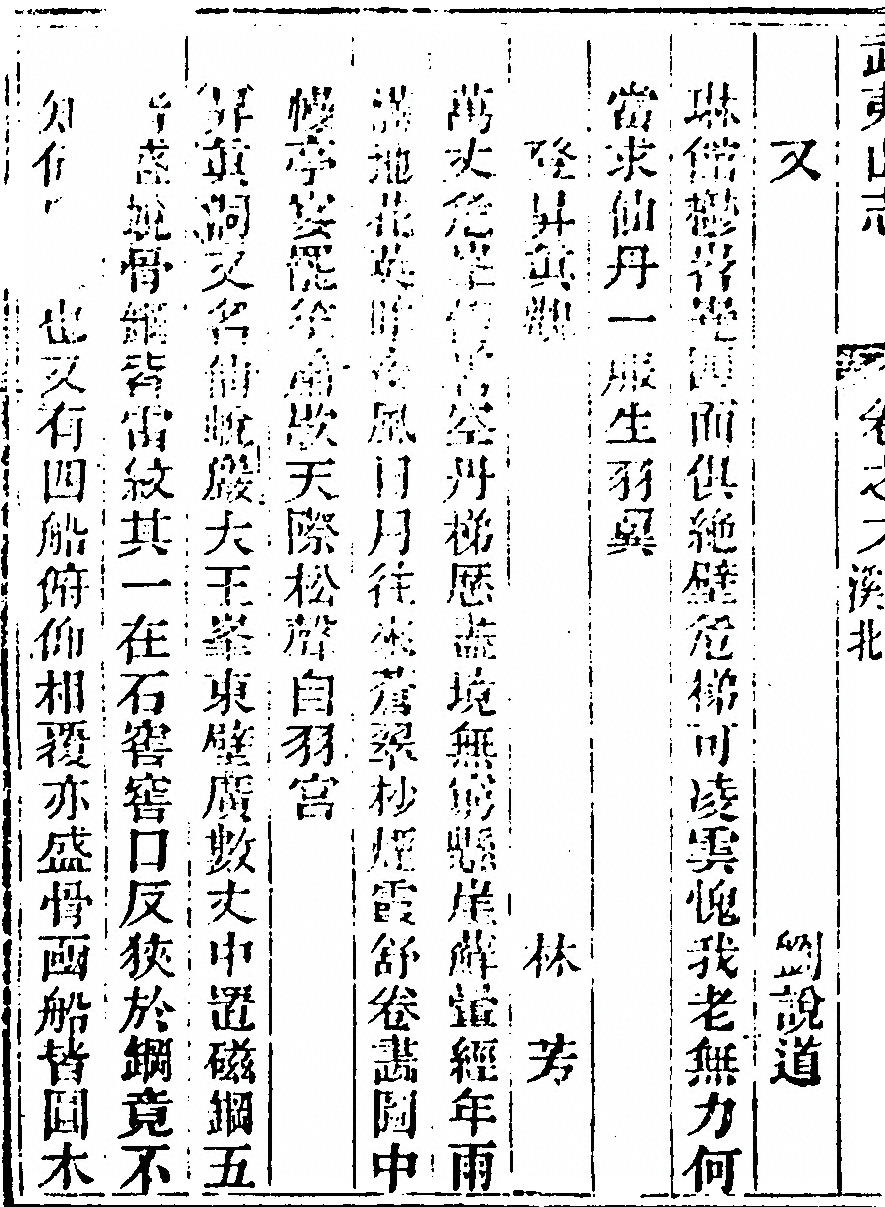 武夷山志 卷之 溪北
又 劉說道
琳館巒岩遶四面俱絶壁危梯可凌雲愧我老無力何
當求仙丹一服生羽翼
登昇真觀 林芳
萬丈危崖倚碧空丹梯歷盡境無窮懸崖蘚蝕經年雨
滿地花英昨夜風日月往來蒼翠杪煙霞舒卷畫圖中
幔亭宴罷笙簫歇天際松聲自羽宮
昇真洞又名仙蛻巖大王峯東壁廣數丈中置磁鋼五
皆盛蛻骨鋼皆雷紋其一在石窖窖口反狹於鋼竟不
知何 也又有四船俯仰相覆亦盛骨函船皆圓木